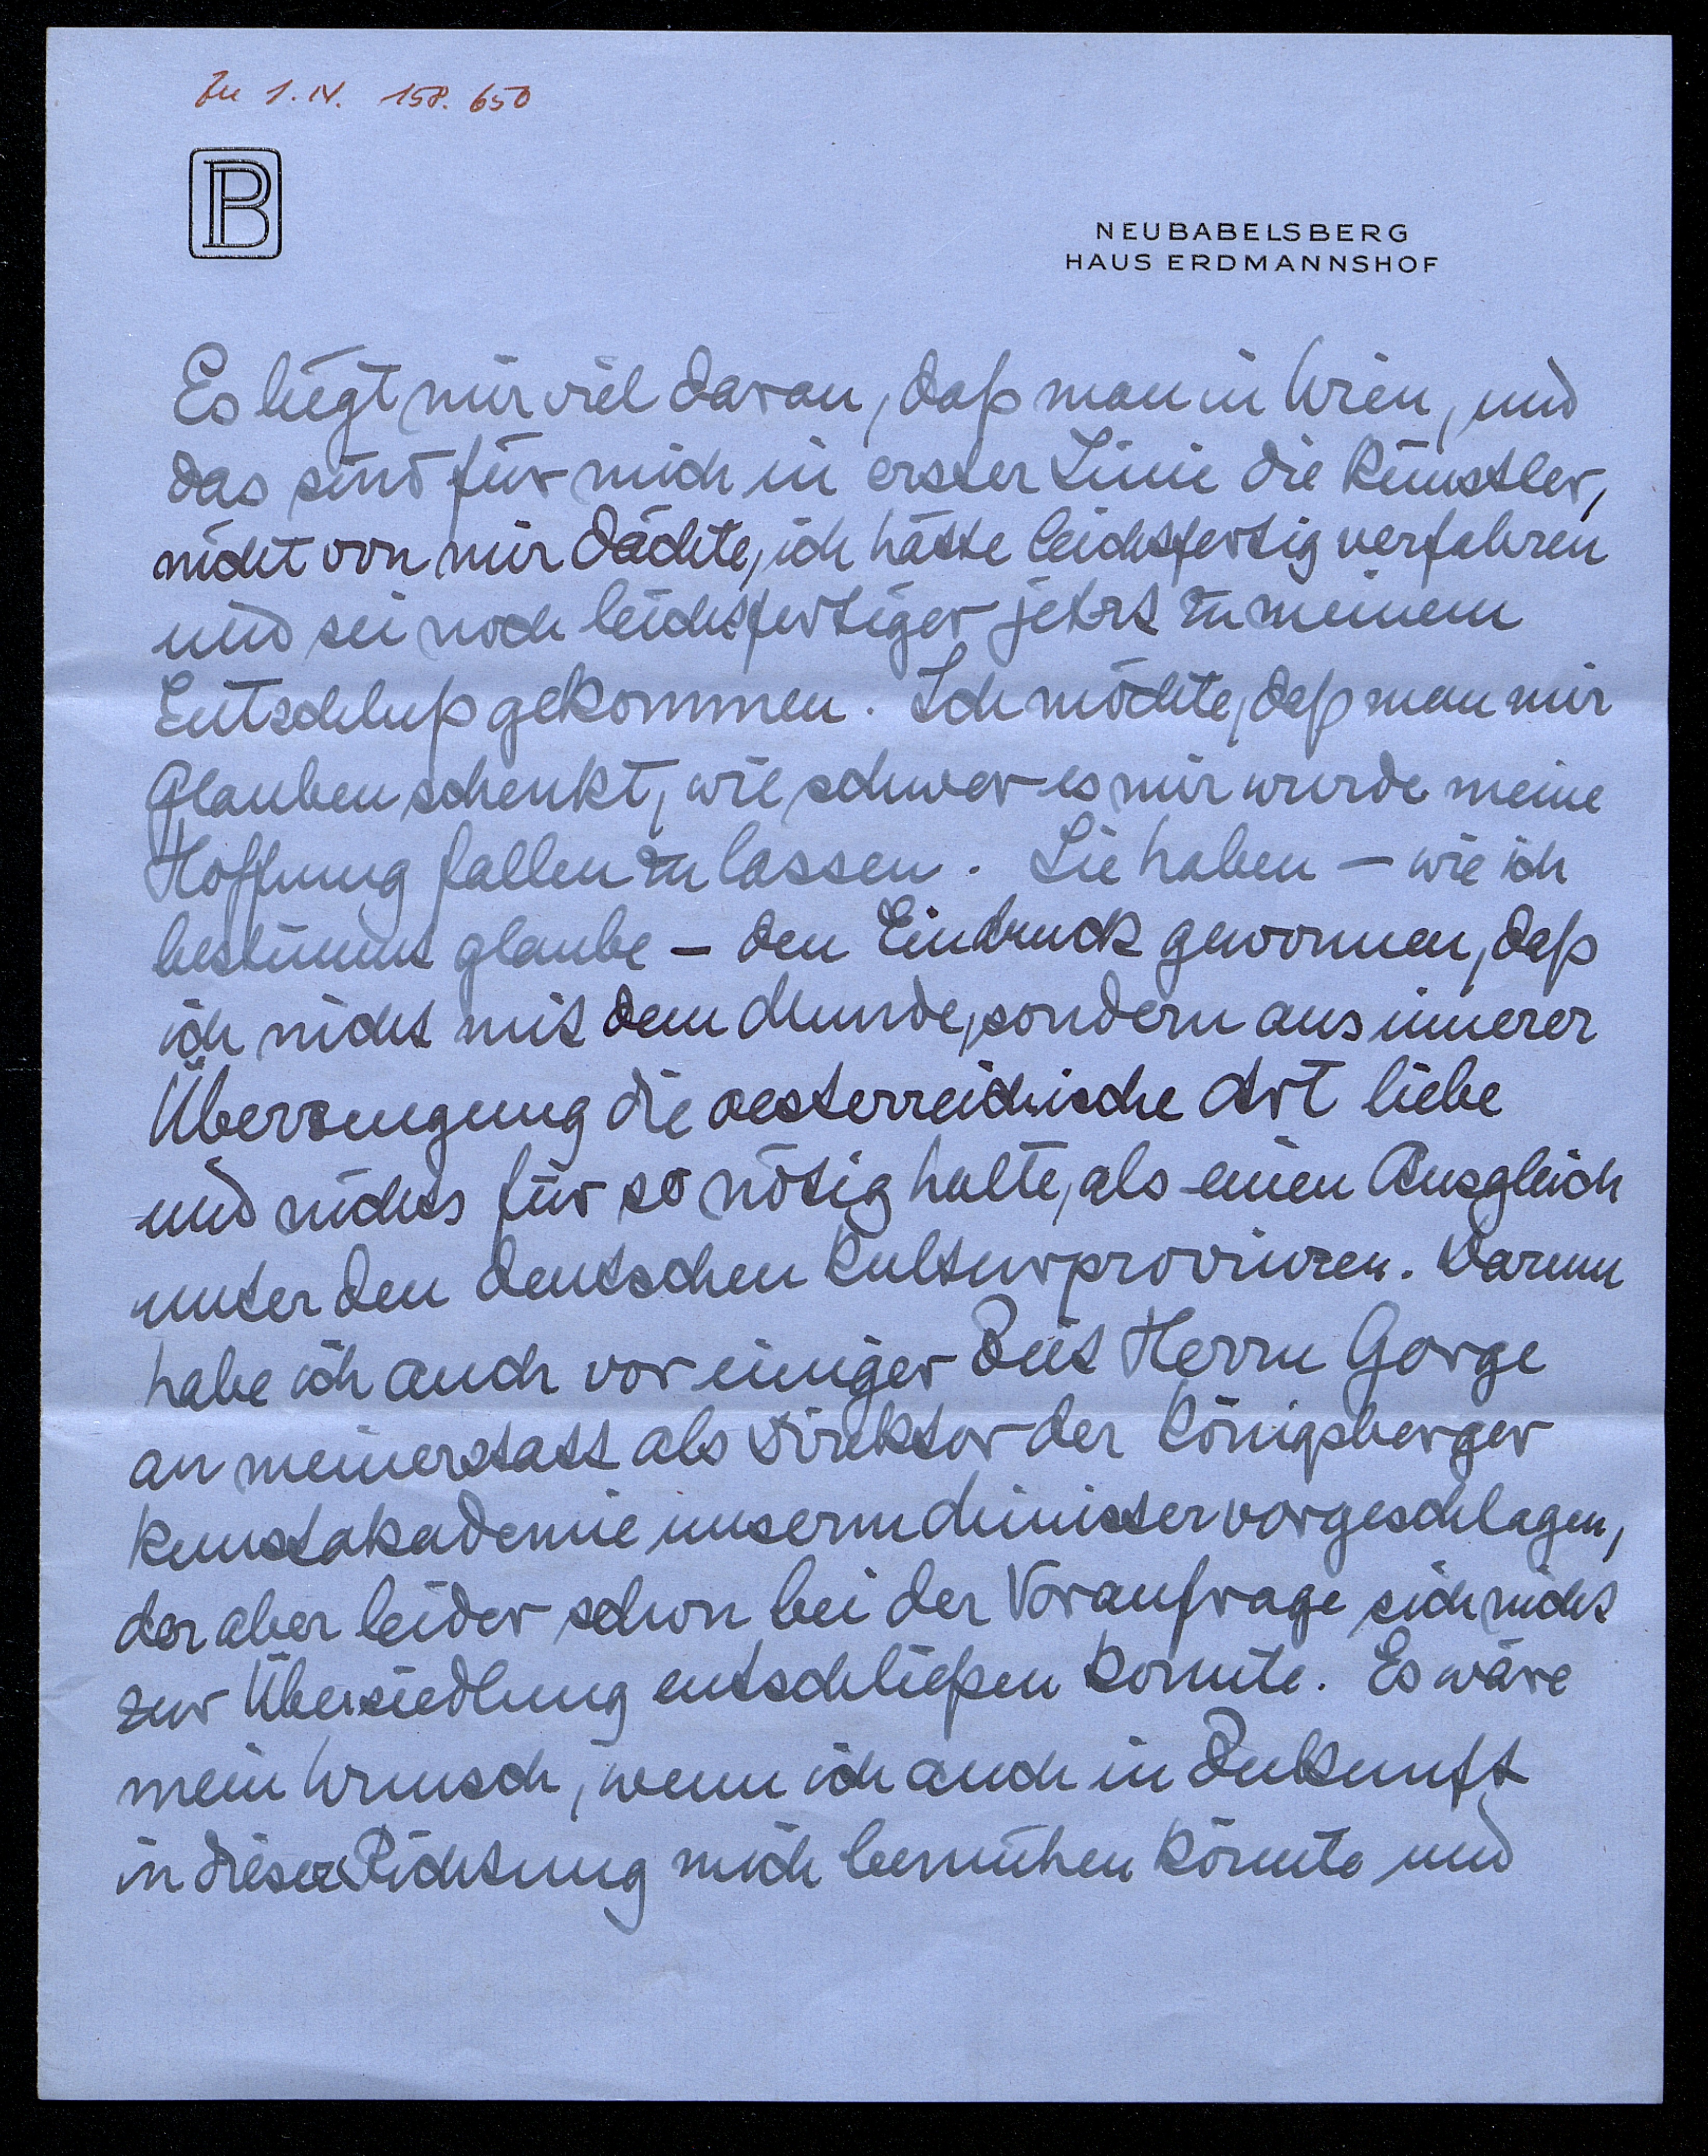 Zu I.N. 158.650
PB
NEUBABELSBERG
HAUS ERDMANNSHOF
Es liegt mir viel daran, daß man in Wien, und
das sind für mich in erster Linie die Künstler,
nicht von mir dächte, ich hätte leichtfertig verfahren
und sei noch leichtfertiger jetzt zu meinem
Entschluß gekommen. Ich möchte, daß man mir
Glauben schenkt, wie schwer es mir wurde meine
Hoffnung fallen zu lassen. Sie haben – wie ich
bestimmt glaube – den Eindruck gewonnen, daß
ich nicht mit dem Munde, sondern aus innerer
Überzeugung die oesterreichische Art liebe
und nichts für so nötig halte, als einen Ausgleich
unter den deutschen Kulturprovinzen. Darum
habe ich auch vor einiger Zeit Herrn Gorge
an meinerstatt als Direktor der Königsberger
Kunstakademie unserm Minister vorgeschlagen,
der aber leider schon bei der Voranfrage sich nicht
zur Übersiedlung entschließen konnte. Es wäre
mein Wunsch, wenn ich auch in Zukunft
in dieser Richtung mich bemühen könnte und